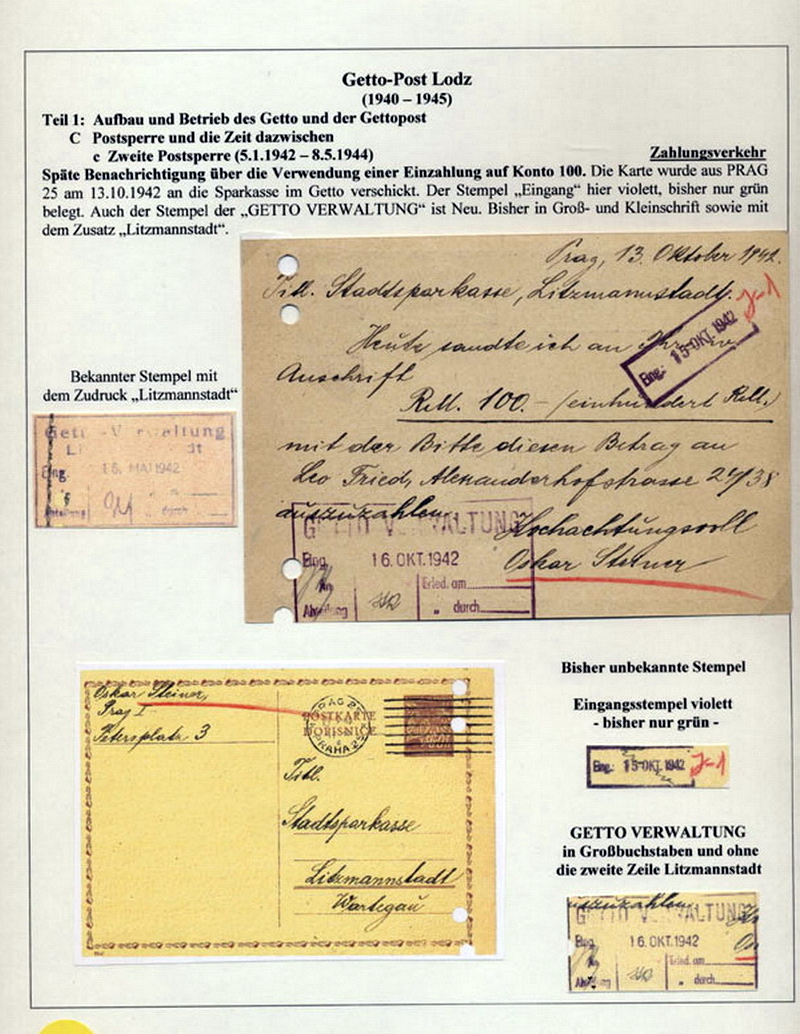 Getto-Post Lodz
(1940 – 1945)
Teil 1: Aufbau und Betrieb des Getto und der Gettopost
C Postsperre und die Zeit dazwischen
c Zweite Postsperre (5.1.1942 – 8.5.1944)
Zahlungsverkehr
Späte Benachrichtigung über die Verwendung einer Einzahlung auf Konto 100. Die Karte wurde aus PRAG
25 am 13.10.1942 an die Sparkasse im Getto verschickt. Der Stempel „Eingang“ hier violett, bisher nur grün
belegt. Auch der Stempel der „GETTO VERWALTUNG“ ist Neu. Bisher in Groß- und Kleinschrift sowie mit
dem Zusatz „Litzmannstadt“.
Prag, 13. Oktober 1942.
Titl. Stadtsparkasse, Litzmannstadt.
J-1
Eing.: 15. OKT. 1942
Heute sandte ich an
Anschrift
RM. 100.- (einhundert RM.)
mit der Bitte diesen Betrag an
Leo Fried, Alexanderhofstrasse 24/38
auszuzahlen.
Hochachtungsvoll
Oskar Steiner
GETTO VERWALTUNG
Eing. 16. OKT. 1942
An Erled. am
Abteilung " durch
Bekannter Stempel mit
dem Zudruck „Litzmannstadt“
Getto-Verwaltung
Eing. 16. MAI 1942
Abteilung " durch
Oskar Steiner,
Prag I.
Petersplatz 3
PRAG 25
POSTKARTE
DOPISNICE
PRAHA 25
Titl.
Stadtsparkasse
Litzmannstadt
Wartegau
Bisher unbekannte Stempel
Eingangsstempel violett
- bisher nur grün -
Eing.: 15. OKT. 1942 J-1
GETTO VERWALTUNG
in Großbuchstaben und ohne
die zweite Zeile Litzmannstadt
auszuzahlen.
GETTO VERWALTUNG
Eing. 16. OKT. 1942
An Erled. am
Abteilung " durch